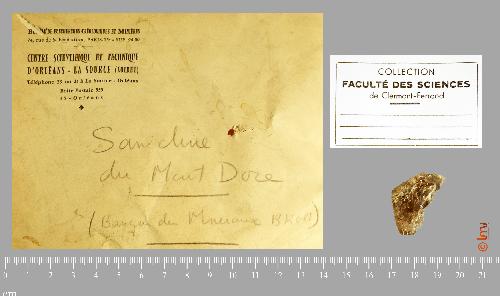 BUREAU DE RECHERCHES GÉOLOGIQUES ET MINIÈRES
74, rue de la Fédération, PARIS-15e
CENTRE SCIENTIFIQUE ET TECHNIQUE
D'ORLÉANS - LA SOURCE (LOIRET)
Boîte Postale
45 - Orléans
Sanidine
du Mont Dore
(Banque des Minéraux BRGM)
COLLECTION
FACULTÉ DES SCIENCES
de Clermont-Ferrand
0 1 2 3 4 5 6 7 8 9 10 11 12 13 14 15 16 17 18 19 20 21
cm